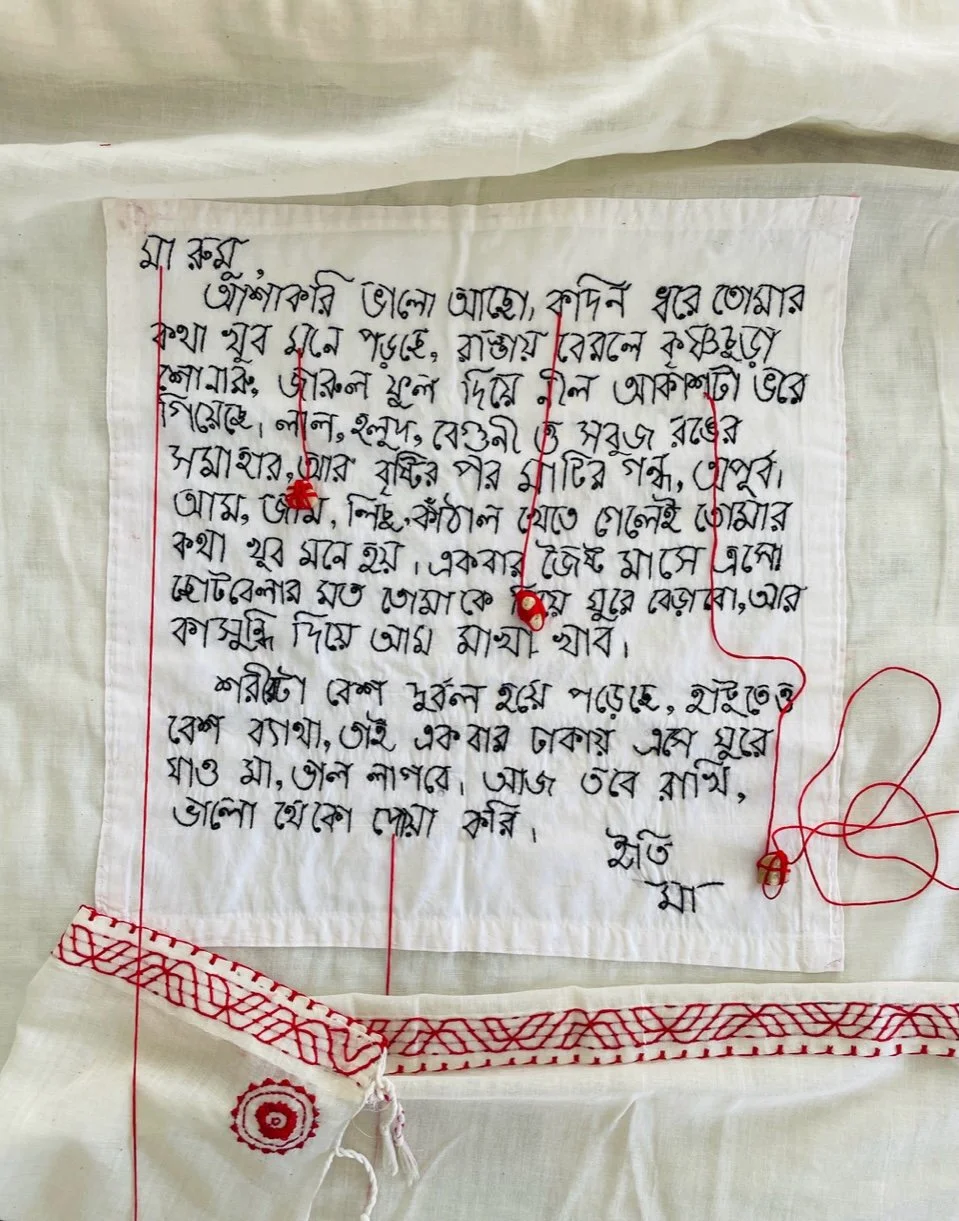 মা রুমু,
আশাকরি ভালো আছো, কদিন ধরে তোমার
কথা খুব মনে পড়ছে, রাস্তায় বেরলে কৃষ্ণচুড়া
শোনারু, জারুল ফুল দিয়ে নীল আকাশটা ভরে
গিয়েছে। লাল, হলুদ, বেগুনী ও সবুজ রঙের
সমাহার, আর বৃষ্টির পর মাটির গন্ধ, অপূর্ব।
আম, জাম, লিচু, কাঁঠাল খেতে গেলেই তোমার
কথা খুব মনে হয়। একবার জৈষ্ট মাসে এসো
ছোটবেলার মত তোমাকে নিয়ে ঘুরে বেড়াবো, আর
কাসুন্ধি দিয়ে আম মাখা খাব।
শরীরটা বেশ দুর্বল হয়ে পড়েছে, হাটুতেও
বেশ ব্যাথা, তাই একবার ঢাকায় এসে ঘুরে
যাও মা, ভাল লাগবে। আজ তবে রাখি,
ভালো থেকো দোয়া করি।
ইতি
মা